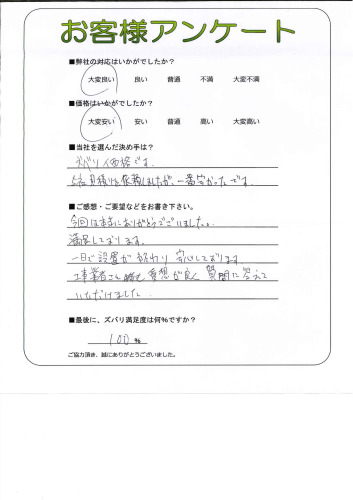 お客様アンケート
■弊社の対応はいかがでしたか？
大変良い 良い 普通 不満 大変不満
■価格はいかがでしたか？
大変安い 安い 普通 高い 大変高い
■当社を選んだ決め手は？
ズバリ価格です。
5社見積りを依頼しましたが、一番安かったです。
■ご感想・ご要望などをお書き下さい。
今回はまことにありがとうございました。
満足しております。
一日で設置が終わり安心しております。
工事業者さん 愛想が良く質問に答えて
いただけました。
■最後に、ズバリ満足度は何％ですか？
100 %
ご協力頂き、誠にありがとうございました。